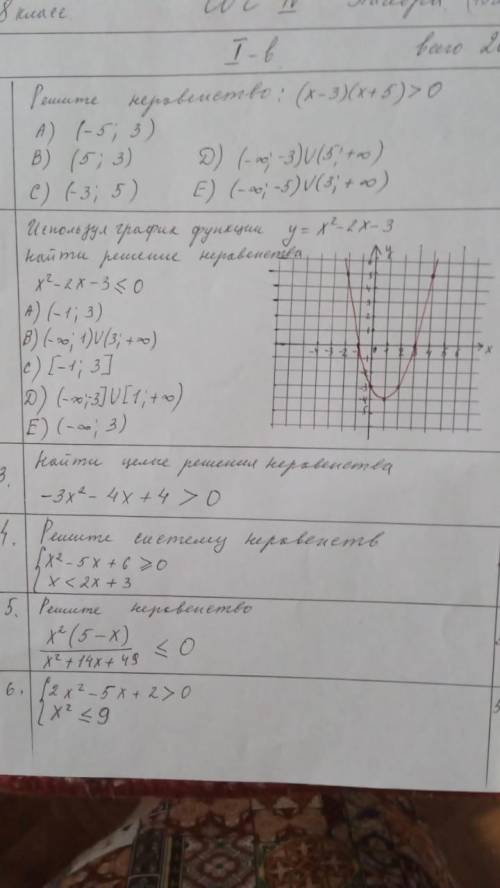 8 класс СОЧ IV Алгебра
I-в всего
Решите неравенство: (x-3)(x+5)>0
A) (-5; 3)
B) (5; 3) D) (-∞; -3)U(5; +∞)
C) (-3; 5) E) (-∞; -5)U(3; +∞)
Используя график функции y = x²-2x-3
найти решение неравенства
x²-2x-3≤0
A) (-1; 3)
B) (-∞; 1)U(3; +∞)
C) [-1; 3]
D) (-∞;-3]U[1; +∞)
E) (-∞; 3)
y
x
3. Найти целые решения неравенства
-3x²-4x+4>0
4. Решите систему неравенств
{x²-5x+6≥0
{x<2x+3
5. Решите неравенство
x²(5-x)
/ x²+14x+49 ≤ 0
6. {2x²-5x+2>0
{x²≤9